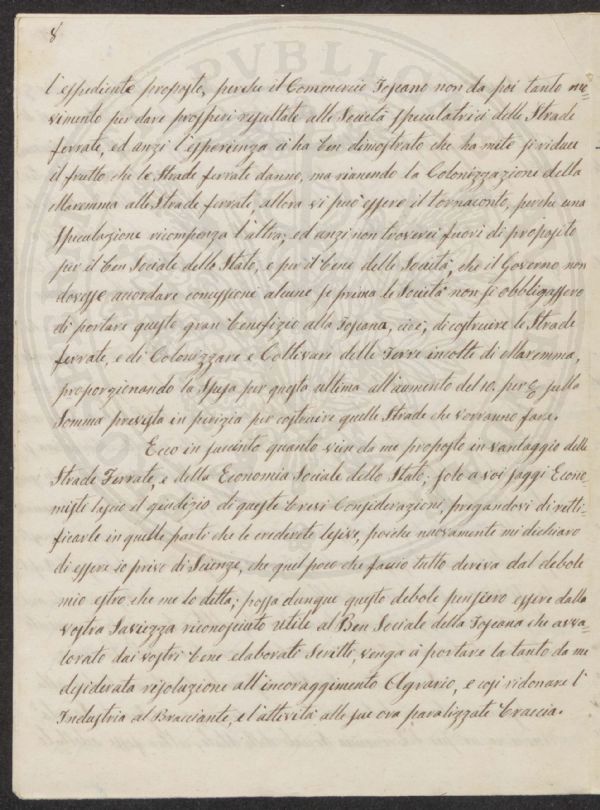 8
l'espediente proposto, perche il Commercio Toscano non da poi tanto mo=
vimento per dare prosperi resultate alle Società speculatrici delle Strade
ferrate, ed anzi l'esperienza ci ha ben dimostrato che ha mite si riduce
il frutto che le Strade ferrate danno, ma rianendo la Colonizzazione della
Maremma alle Strade ferrate, allora vi può essere il tornaconto, perche una
Speculazione ricompenza l'altra; ed anzi non troverei fuori di proposito
per il ben Sociale dello Stato, e per il bene delle Società, che il Governo non
dovesse accordare concessioni alcune se prima le Società non si obbligassero
di portare questo gran benefizio alla Toscana, cioè, di costruire le Strade
ferrate, e di Colonizzare e Coltivare delle Terre incolte di Maremma,
proporzionando la Spesa per questa ultima all'aumento del 10. per % sulla
Somma prevista in perizia per costruire quelle Strade che vorranno fare.
Ecco in succinto quanto vien da me proposto in vantaggio delle
Strade Ferrate, e della Economia Sociale dello Stato; solo a voi saggi Econo=
misti lascio il giudizio di queste brevi Considerazioni, pregandovi di retti=
ficarle in quelle parti che le crederete lesive, poiche nuovamente mi dichiaro
di essere io privo di Scienze, che quel poco che faccio tutto deriva dal debole
mio estro che me lo detta; possa dunque questo debole pensiero essere dalla
Vostra Saviezza riconosciuto utile al Ben Sociale della Toscana che avva=
lorato dai vostri bene elaborati Scritti, venga a portare la tanto da me
desiderata risoluzione all'incoraggimento Agrario, e così ridonare l'
Industria al Bracciante, e l'attività alle sue ora paralizzate braccia.